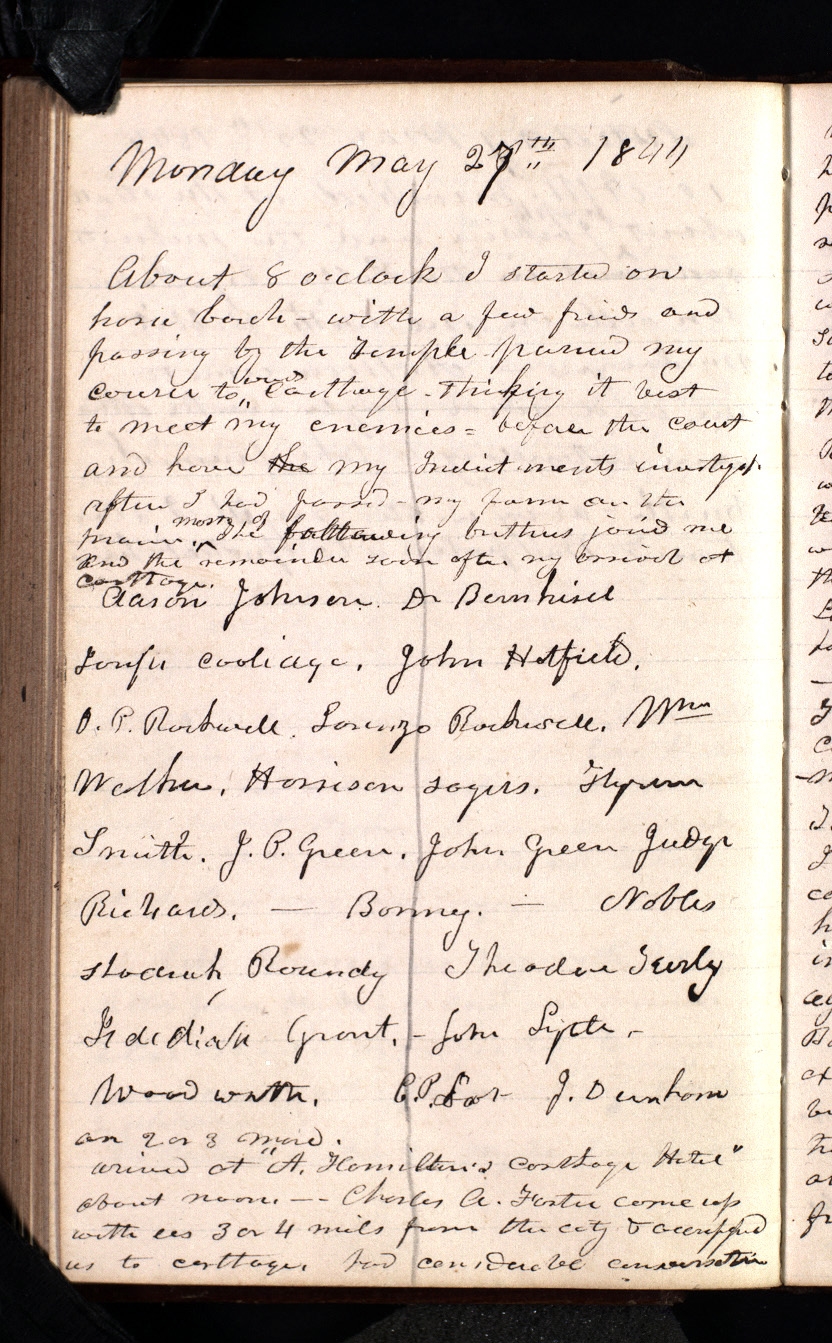 Monday May 27th 1844
About 8 oclock I started on
horse back - with a few frieds and
passing by the Temple pursued my
course towards Carthage - thinking it best
to meet my enemies = before the court
and have the my Indictments investigat.
after I had passed - my farm on the
prairie, most of the following brethren joined me
and the remainder soon after my arrival at
carthage.
Aaron Johnson. Dr Bernhisel
Joseph coolidge, John Hatfield,
O. P. Rockwell. Lorenzo Rockwell, Wm
Walker, Harrison sagers. Hyrum
Smith. J. P. Green, John Green Judge
Richards. — Bonney. — Nobles
shadrach Roundy Theodore Turly
Jedediah Grant, - John Lytle -
Wood worth. C. P. Lott J. Dunham
an 2 or 3 more.
arived at "A. Hamilton's carthage Hotel"
about noon. -- Charles A. Foster come up
with us 3 or 4 mils from the city &
us to carthage. had considerable conversation